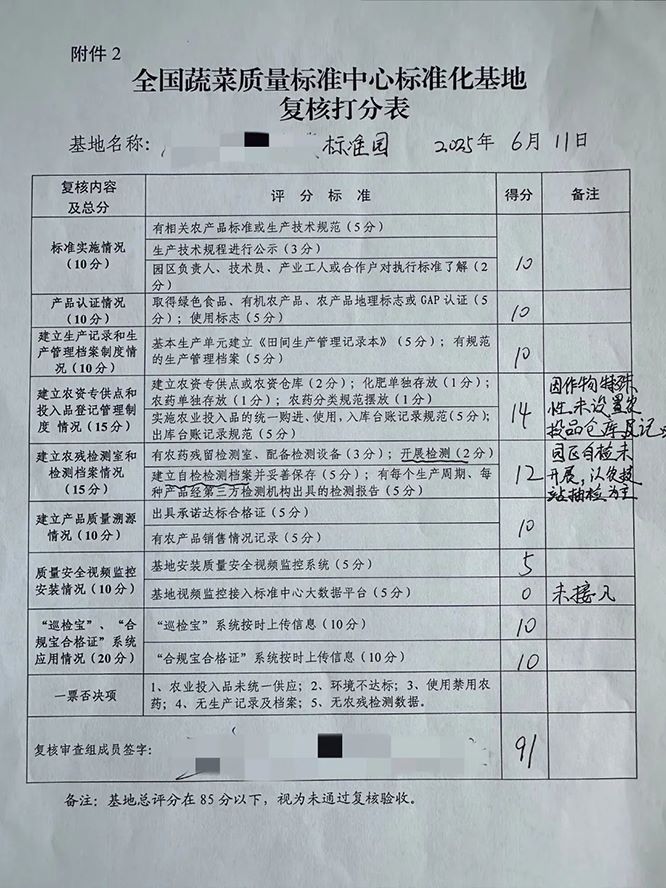 附件 2
全国蔬菜质量标准中心标准化基地
复核打分表
基地名称: 标准园 2025年 6月 11日
复核内容
及总分
评 分 标 准
得分
备注
标准实施情况
(10 分)
有相关农产品标准或生产技术规范(5 分)
生产技术规程进行公示(3 分)
园区负责人、技术员、产业工人或合作户对执行标准了解(2
分)
10
产品认证情况
(10 分)
取得绿色食品、有机农产品、农产品地理标志或 GAP 认证(5
分);使用标志(5 分)
10
建立生产记录和生
产管理档案制度情
况(10 分)
基本生产单元建立《田间生产管理记录本》(5 分);有规范
的生产管理档案(5 分)
10
建立农资专供点和
投入品登记管理制
度 情况(15 分)
建立农资专供点或农资仓库(2 分);化肥单独存放(1 分);
农药单独存放(1 分);农药分类规范摆放(1 分)
实施农业投入品的统一购进、使用,入库台账记录规范(5 分);
出库台账记录规范(5 分)
14
因作物特殊
性,未设置农
投品仓库及记录
建立农残检测室和
检测档案情况
(15 分)
有农药残留检测室、配备检测设备(3 分);开展检测(2 分)
建立自检检测档案并妥善保存(5 分);有每个生产周期、每
种产品经第三方检测机构出具的检测报告(5 分)
12
园区自检未
开展,以农技
站抽检为主
建立产品质量溯源
情况(10 分)
出具承诺达标合格证(5 分)
有农产品销售情况记录(5 分)
10
质量安全视频监控
安装情况(10 分)
基地安装质量安全视频监控系统(5 分)
5
基地视频监控接入标准中心大数据平台(5 分)
0
未接入
“巡检宝”、“合
规宝合格证”系统
应用情况(20 分)
“巡检宝”系统按时上传信息(10 分)
10
“合规宝合格证”系统按时上传信息(10 分)
10
一票否决项
1、农业投入品未统一供应;2、环境不达标;3、使用禁用农
药;4、无生产记录及档案;5、无农残检测数据。
复核审查组成员签字:
91
备注:基地总评分在 85 分以下,视为未通过复核验收。